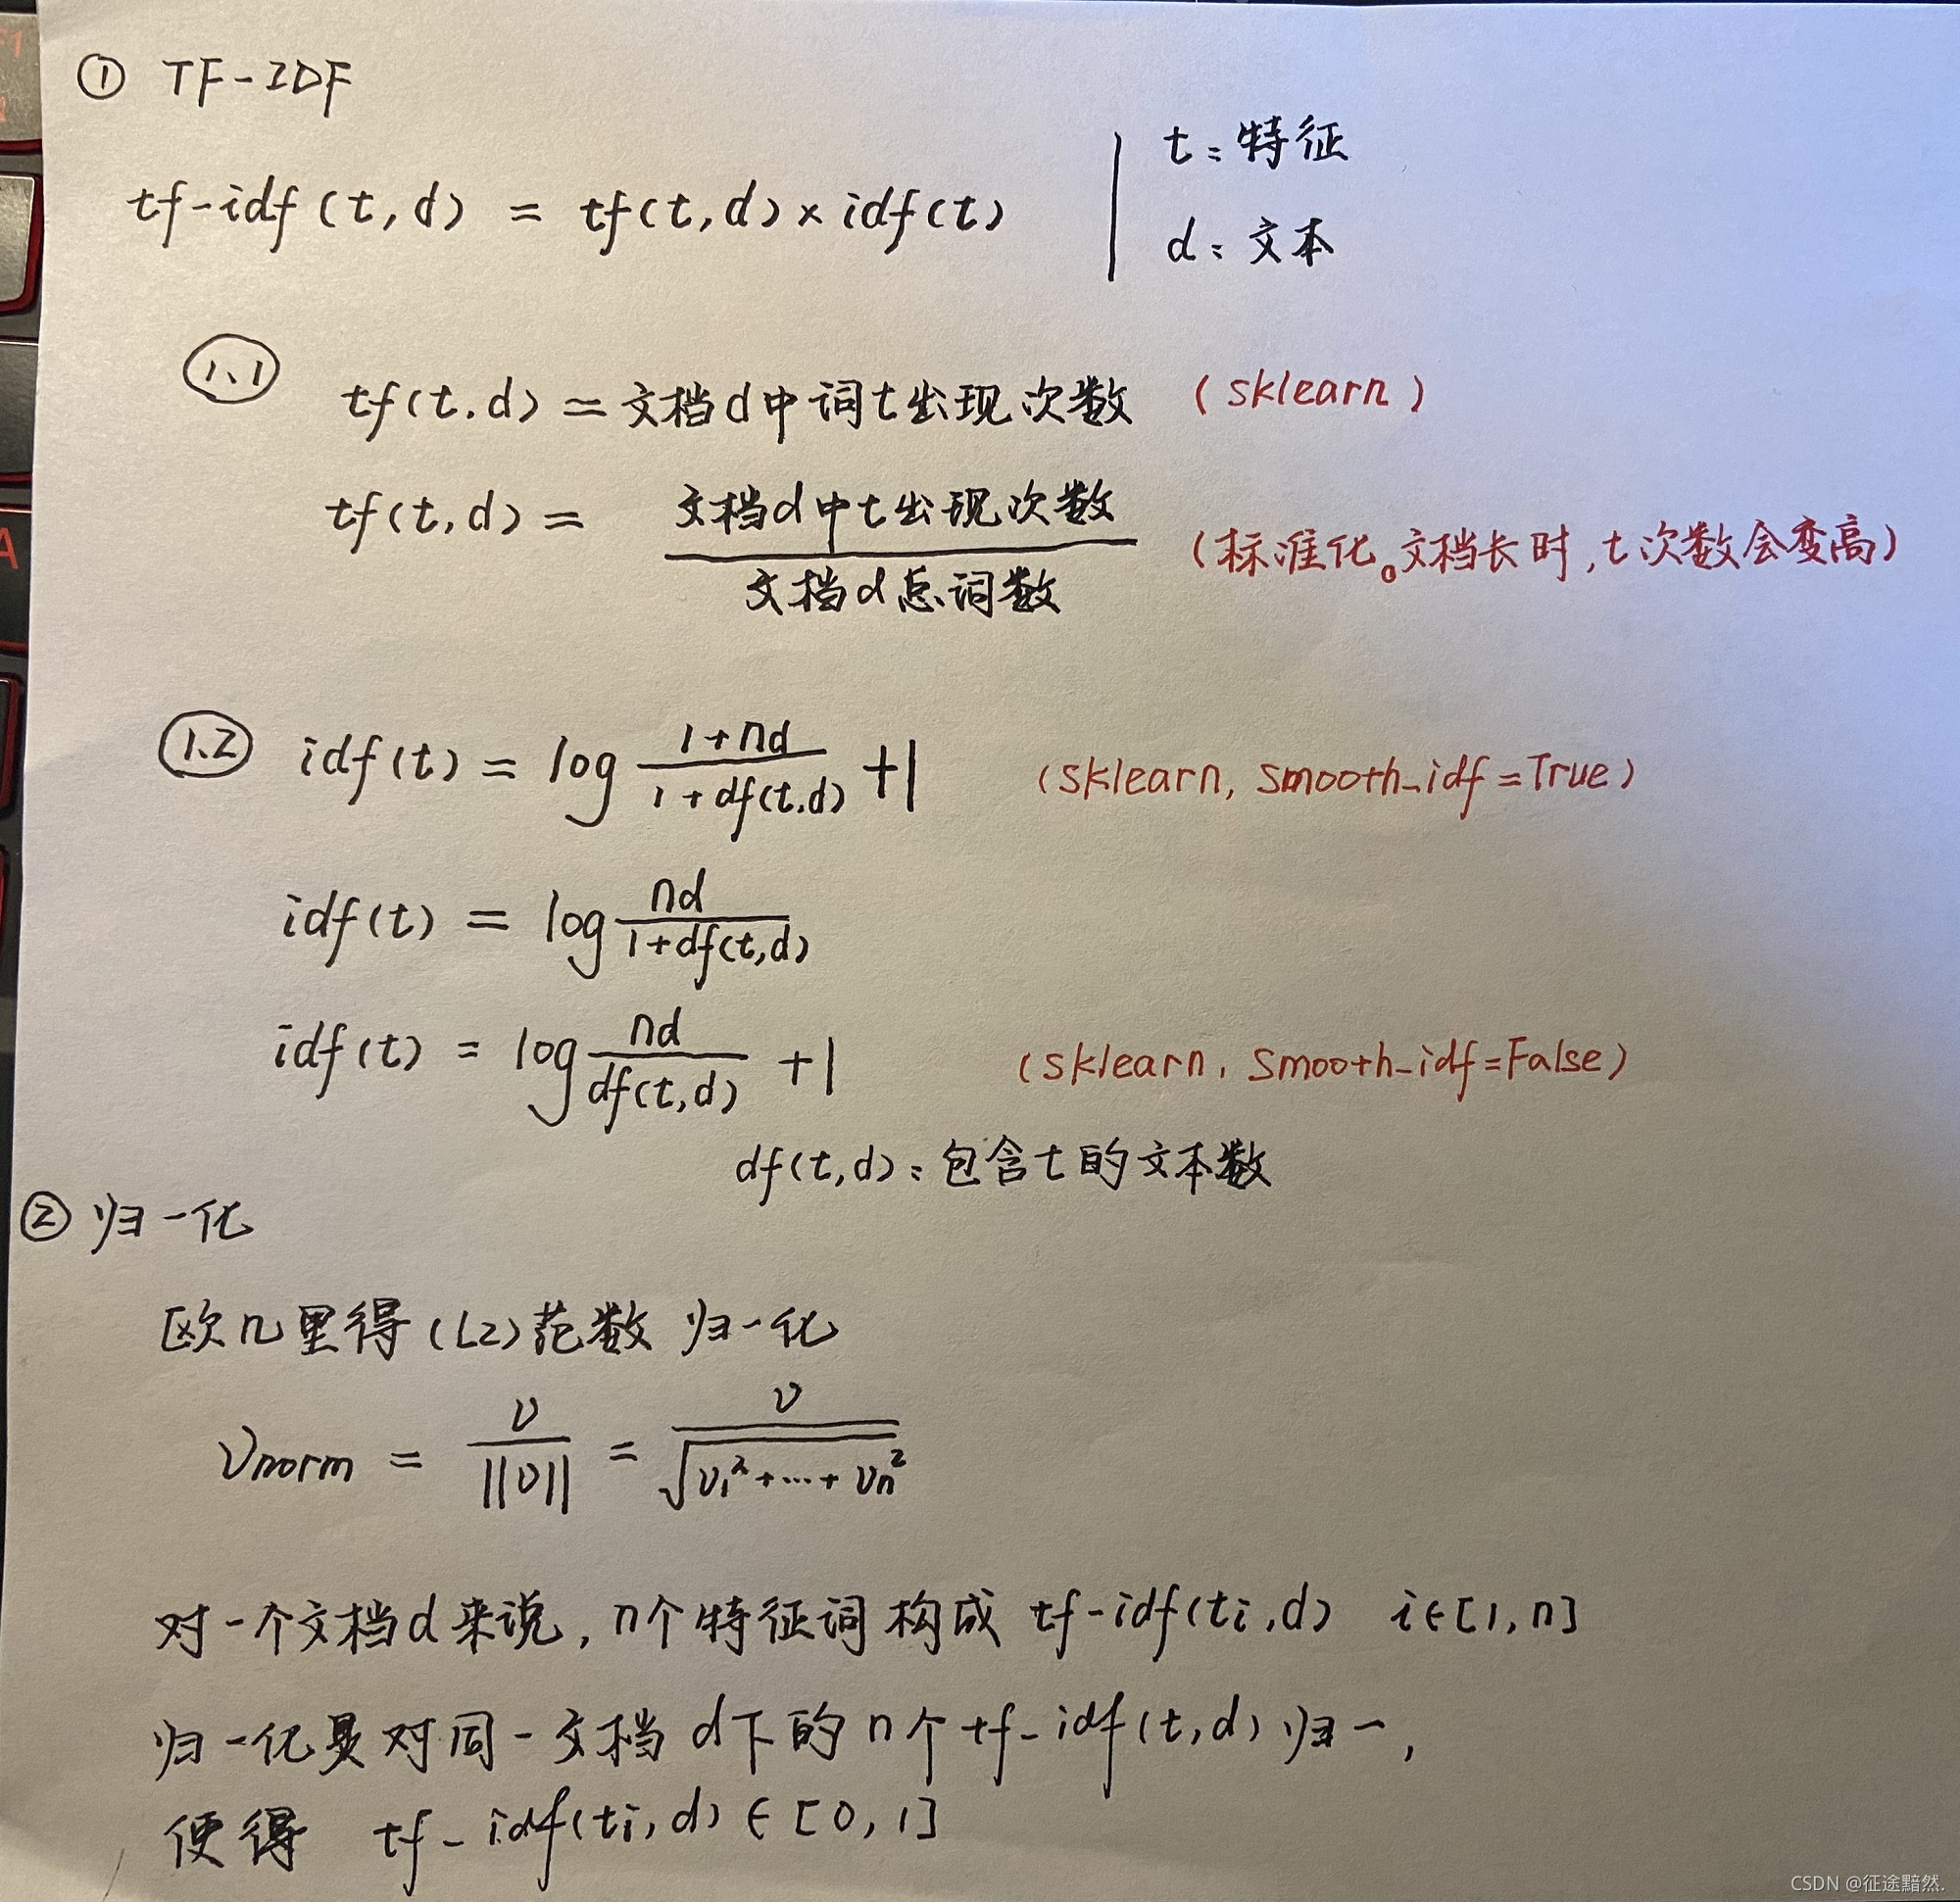 ① TF-IDF
tf-idf(t,d) = tf(t,d)×idf(t)
t:特征
d:文本
1.1 tf(t.d)=文档d中词t出现次数 (sklearn)
tf(t,d)= 文档d中t出现次数 / 文档d总词数 (标准化。文档长时,t次数会变高)
1.2 idf(t) = log (1+nd)/(1+df(t.d)) +1 (sklearn, smooth_idf=True)
idf(t) = log nd/(1+df(t,d))
idf(t) = log nd/df(t,d) +1 (sklearn, smooth_idf=False)
df(t,d):包含t的文本数
② 归一化
欧几里得(L2)范数 归一化
νnorm = ν/||ν|| = ν/√(ν1²+…+νn²)
对一个文档d来说,n个特征词构成 tf-idf(ti,d) i∈[1,n]
归一化是对同一文档d下的n个tf-idf(t,d)归一,
使得 tf-idf(ti,d)∈[0,1]
CSDN @征途黯然.